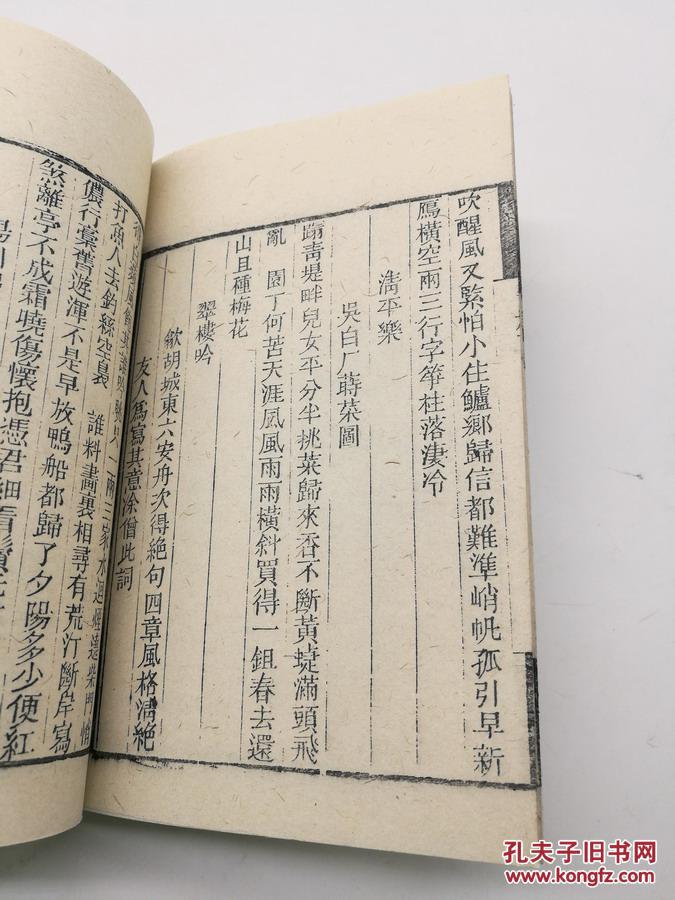 吹醒風又緊怕小住鱸鄉歸信都難準峭帆孤引早新
鴈橫空兩三行字箏柱落淒冷
淸平樂
吳白厂蒔菜圖
踏靑堤畔兒女平分半挑菜歸來香不斷黃蜨滿頭飛
亂　園丁何苦天涯風風雨雨橫斜買得一鉏春去還
山且種梅花
翠樓吟
歙胡城東六安舟次得絶句四章風格淸絶
友人爲寫其意余僧此詞
打漁人去釣絲空裊　誰料畫裏相尋有荒汀斷岸寫
儂行稾舊遊渾不是早放鴨船都歸了夕陽多少便紅
煞離亭不成霜曉傷懷抱憑君細看鬢
孔夫子旧书网
kongfz.com